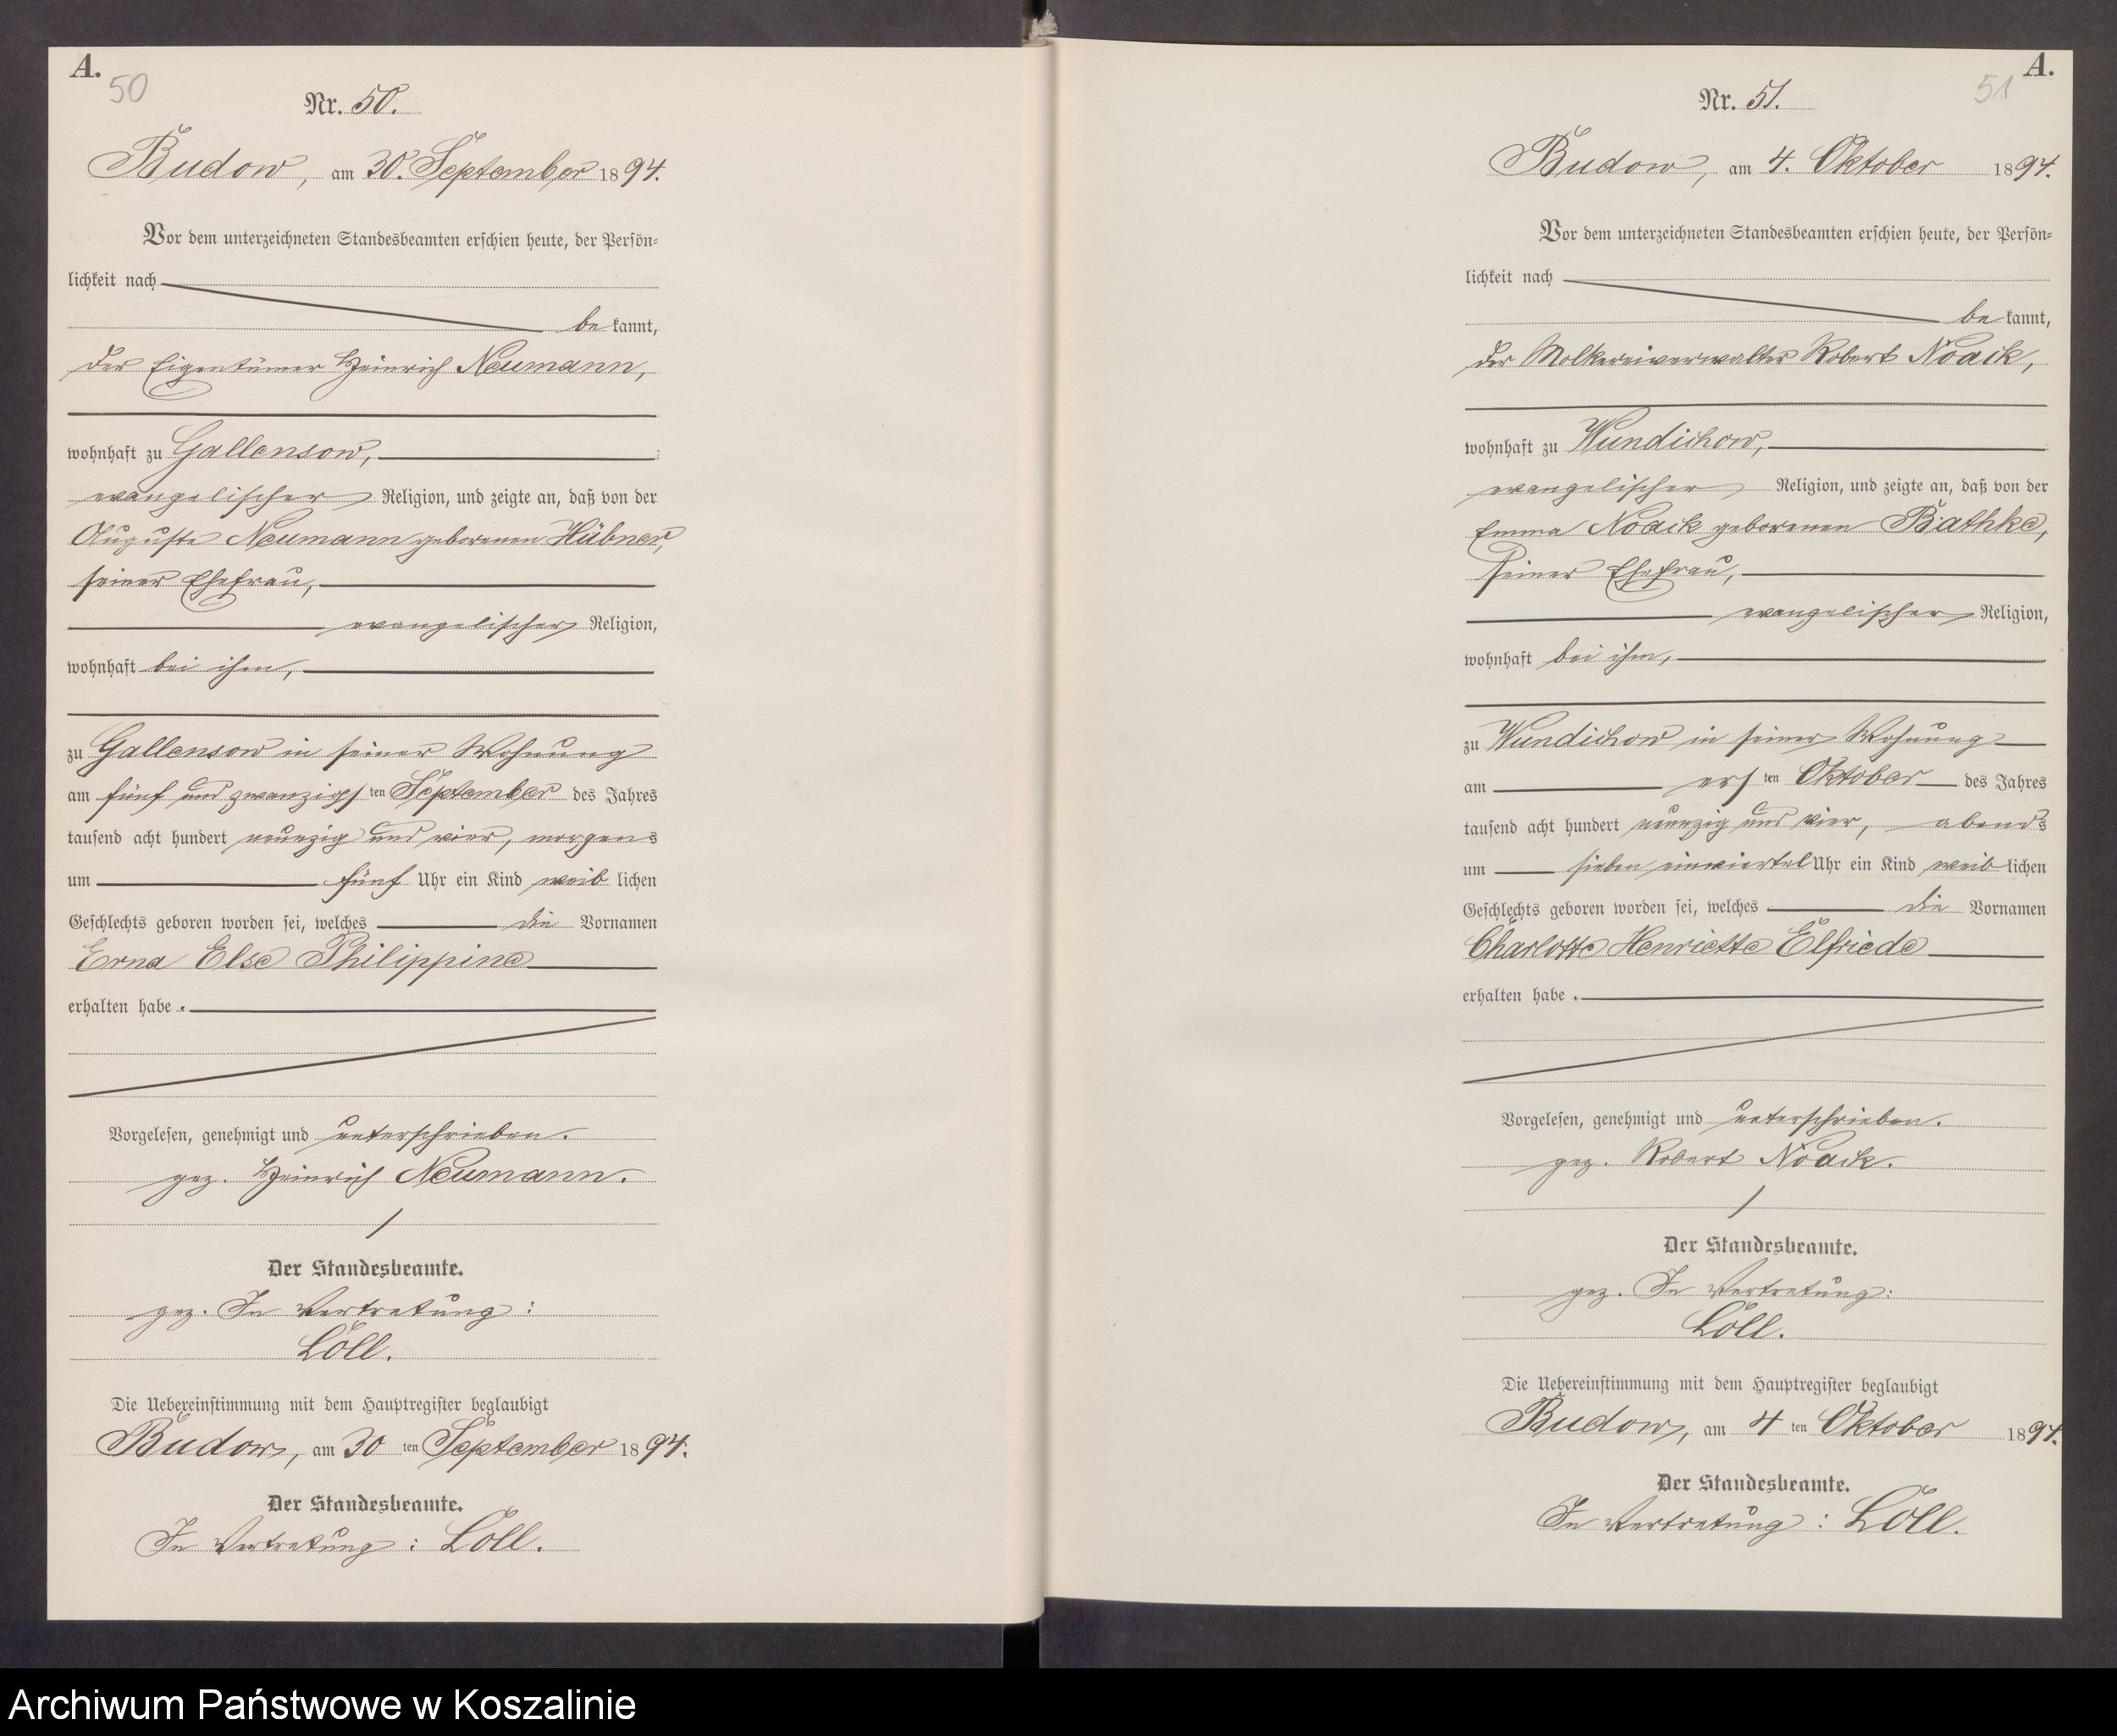 A.
50
Nr. 50.
Budow, am 30. September 1894.
Vor dem unterzeichneten Standesbeamten erschien heute, der Persön=
lichkeit nach
bekannt,
der Eigentümer Heinrich Neumann,
wohnhaft zu Gallensow,
evangelischer Religion, und zeigte an, daß von der
Auguste Neumann geborenen Hübner,
seiner Ehefrau,
evangelischer Religion,
wohnhaft bei ihm,
zu Gallensow in seiner Wohnung
am fünf und zwanzigsten September des Jahres
tausend acht hundert neunzig und vier, morgens
um fünf Uhr ein Kind weiblichen
Geschlechts geboren worden sei, welches die Vornamen
Erna Else Philippine
erhalten habe.
Vorgelesen, genehmigt und unterschrieben.
gez. Heinrich Neumann.
Der Standesbeamte.
gez. In Vertretung:
Löll.
Die Uebereinstimmung mit dem Hauptregister beglaubigt
Budow, am 30 ten September 1894.
Der Standesbeamte.
In Vertretung: Löll.
A.
51
Nr. 51.
Budow, am 4. Oktober 1894.
Vor dem unterzeichneten Standesbeamten erschien heute, der Persön=
lichkeit nach
bekannt,
der Molkereiverwalter Robert Noack,
wohnhaft zu Wundichow,
evangelischer Religion, und zeigte an, daß von der
Emma Noack geborenen Bathke,
seiner Ehefrau,
evangelischer Religion,
wohnhaft bei ihm,
zu Wundichow in seiner Wohnung
am ersten Oktober des Jahres
tausend acht hundert neunzig und vier, abends
um sieben einviertel Uhr ein Kind weiblichen
Geschlechts geboren worden sei, welches die Vornamen
Charlotte Henriette Elfriede
erhalten habe.
Vorgelesen, genehmigt und unterschrieben.
gez. Robert Noack.
Der Standesbeamte.
gez. In Vertretung:
Löll.
Die Uebereinstimmung mit dem Hauptregister beglaubigt
Budow, am 4 ten Oktober 1894.
Der Standesbeamte.
In Vertretung: Löll.
Archiwum Państwowe w Koszalinie